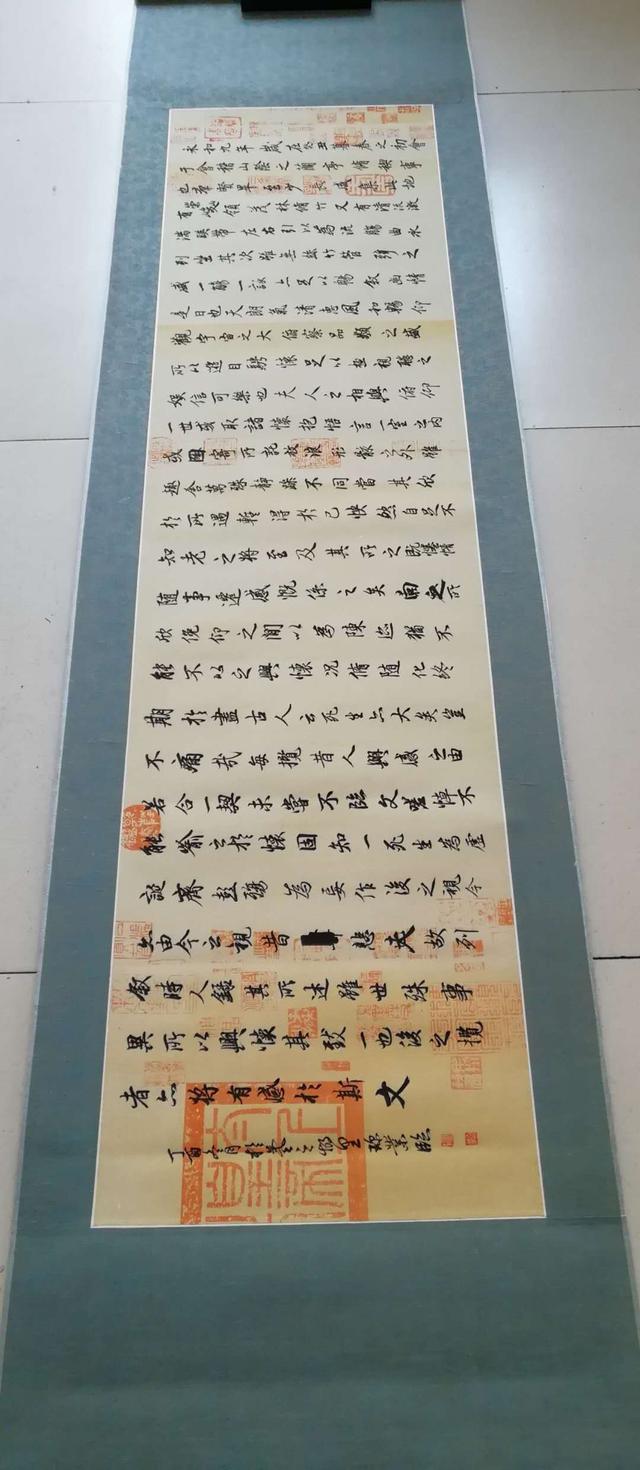 永和九年歲在癸丑暮春之初會
于會稽山陰之蘭亭脩禊事
也群賢畢至少長咸集此地
有崇峻領茂林脩竹又有清流激
湍暎帶左右引以為流觴曲水
列坐其次雖無絲竹管弦之
盛一觴一詠亦足以暢敘幽情
是日也天朗氣清惠風和暢仰
觀宇宙之大俯察品類之盛
所以遊目騁懷足以極視聽之
娛信可樂也夫人之相與俯仰
一世或取諸懷抱悟言一室之內
或因寄所託放浪形骸之外雖
趣舍萬殊靜躁不同當其欣
於所遇暫得於己快然自足不
知老之將至及其所之既惓情
隨事遷感慨係之矣向之所
欣俛仰之閒以為陳迹猶不
能不以之興懷況脩隨化終
期於盡古人云死生亦大矣豈
不痛哉每攬昔人興感之由
若合一契未嘗不臨文嗟悼不
能喻之於懷固知一死生為虛
誕齊彭殤為妄作後之視今
亦由今之視昔悲夫故列
敘時人錄其所述雖世殊事
異所以興懷其致一也後之攬
者亦將有感於斯文
丁酉冬月於臨